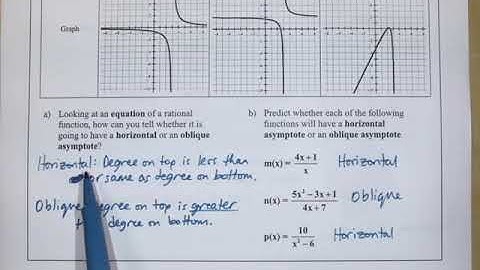 Graph
a) Looking at an equation of a rational function, how can you tell whether it is going to have a horizontal or an oblique asymptote?
Horizontal: Degree on top is less than
or same as degree on bottom.
Oblique: Degree on top is greater
degree on bottom.
b) Predict whether each of the following functions will have a horizontal asymptote or an oblique asymptote.
m(x) = 4x+1 / x Horizontal
n(x) = 5x² − 3x + 1 / 4x + 7 Oblique
p(x) = 10 / x² − 6 Horizontal